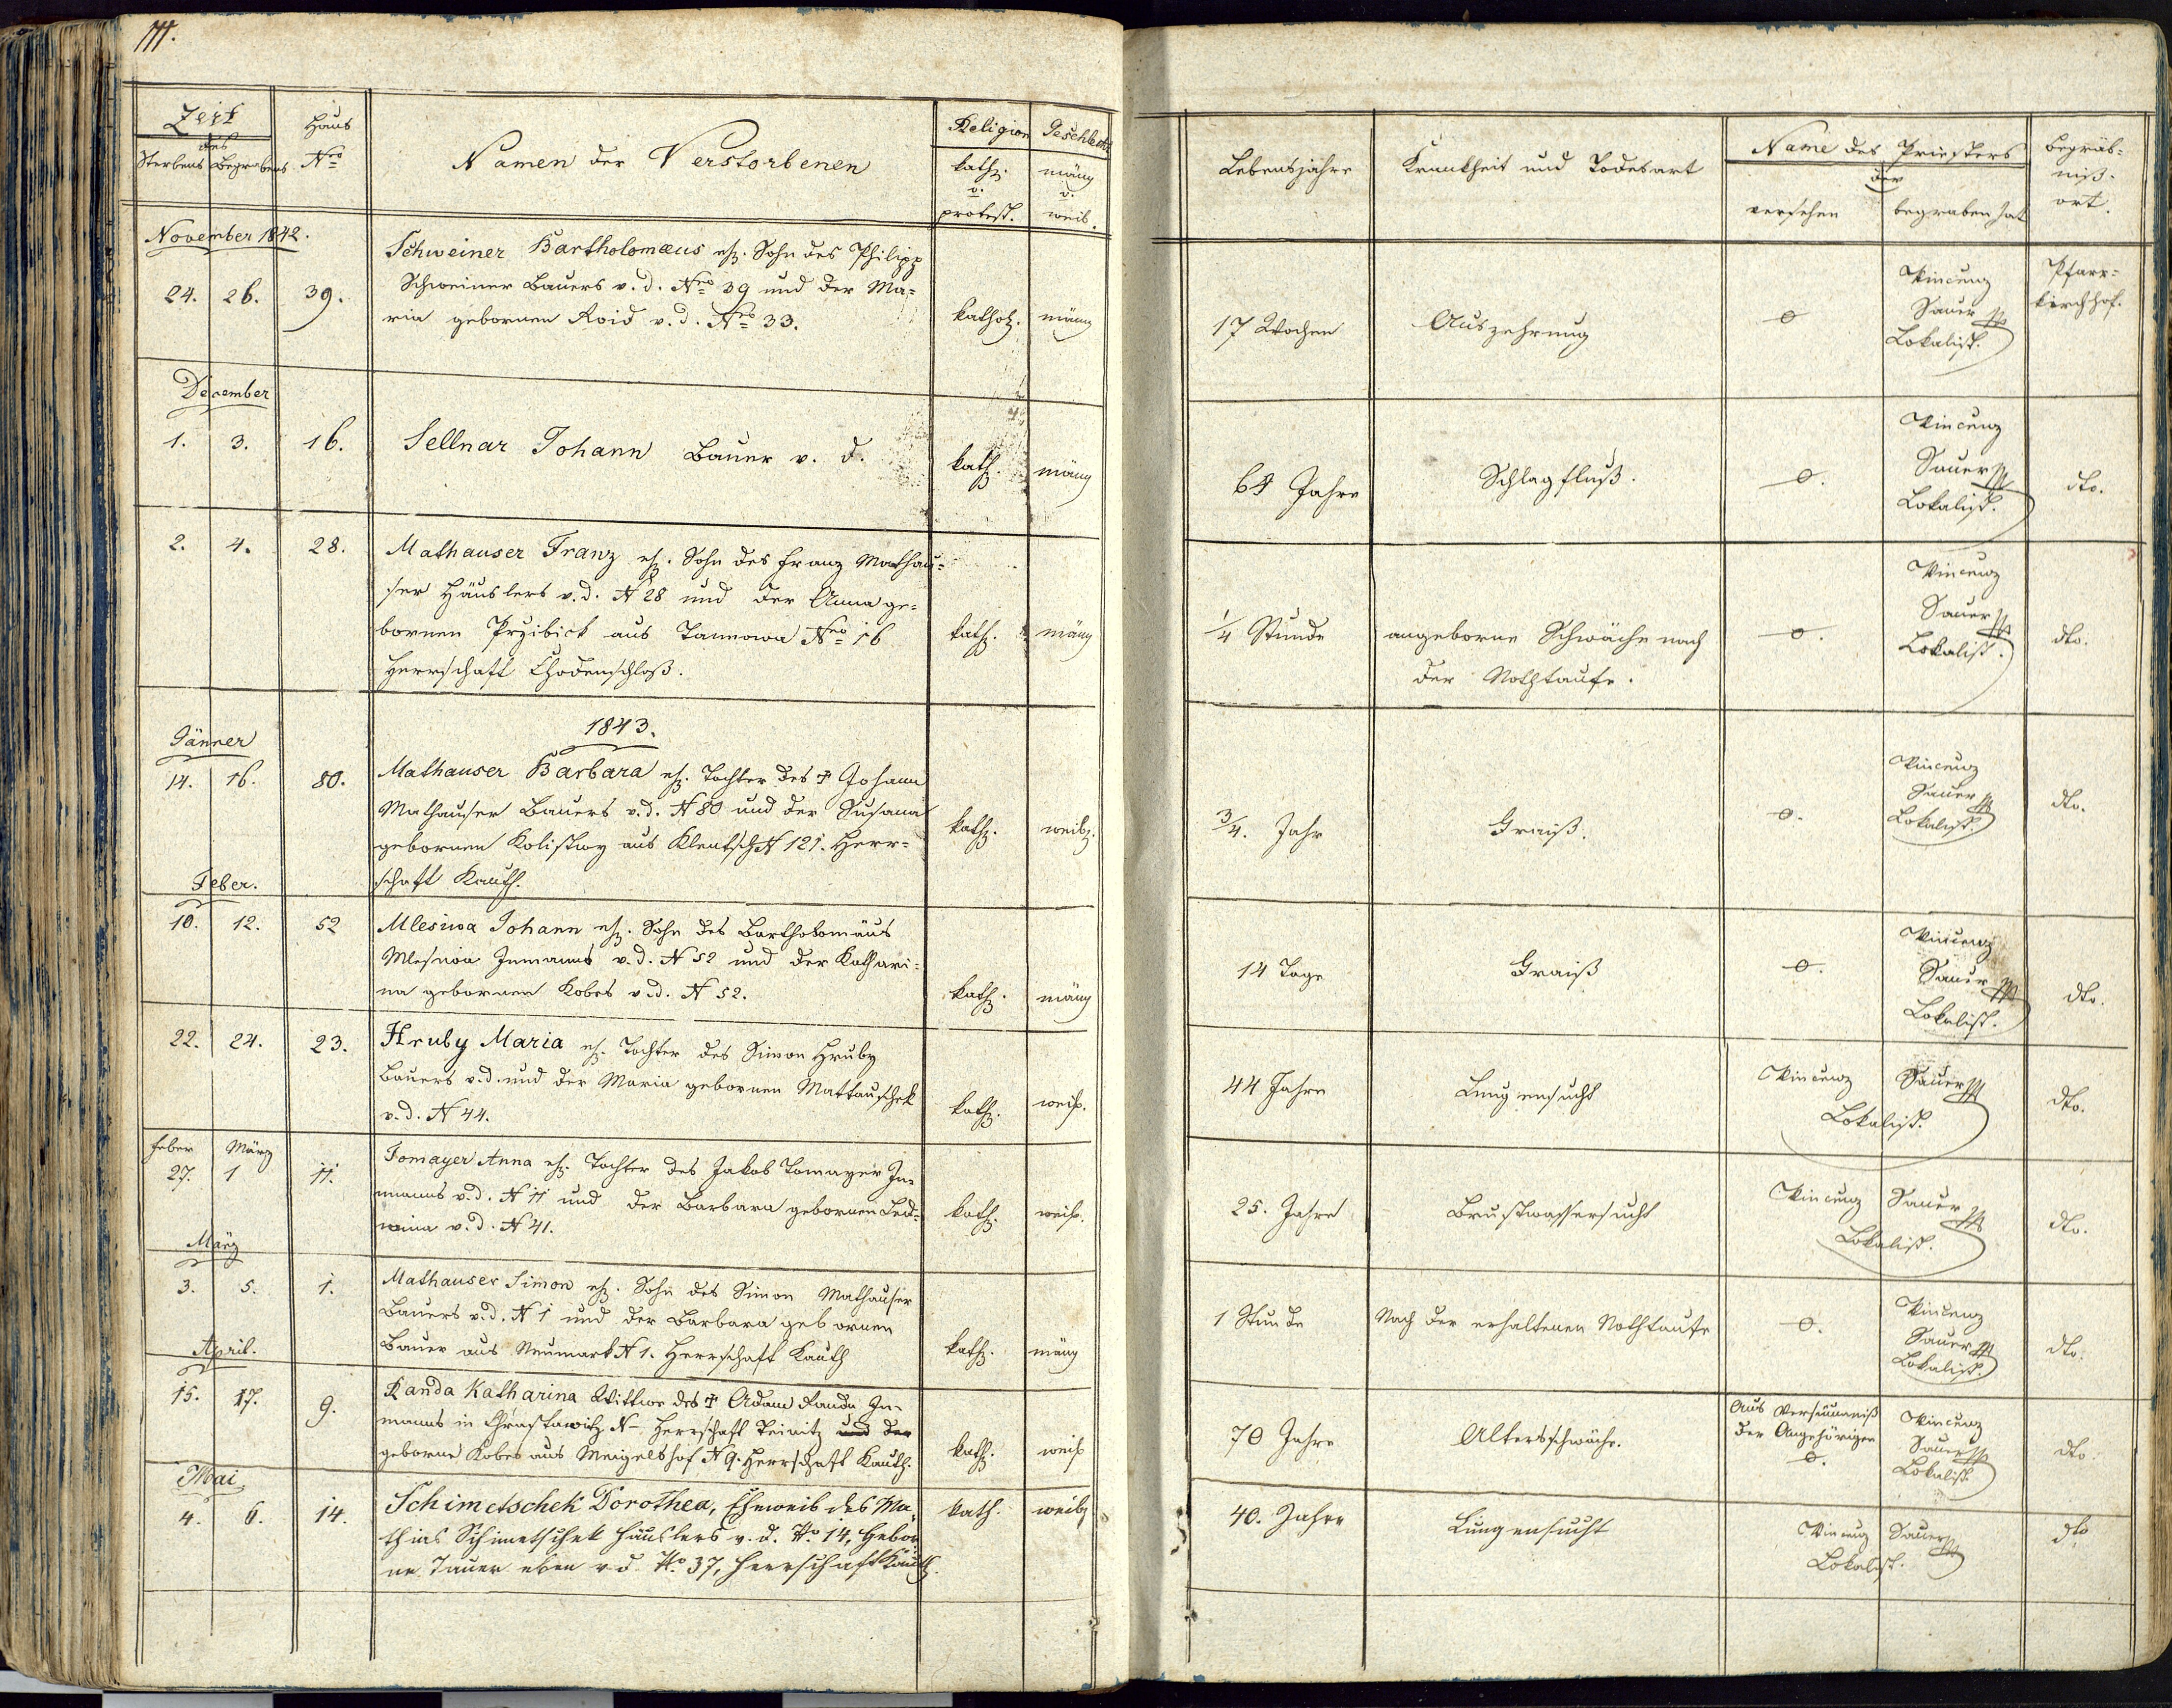 111.
Zeit
des
Sterbens Begrabens
Haus
Nro
Namen der Verstorbenen
Religion
kath.
v.
protest.
Geschlecht
männ
v.
weib.
Lebensjahre
Krankheit und Todesart
Name des Priesters
der
versehen
begraben hat
Begräb-
niß-
ort.
November 1842.
24. 26. 39.
Schweiner Bartholomæus eh. Sohn des Philipp
Schweiner Bauers v. d. Nro 39 und der Ma-
ria gebornen Roid v. d. Nro 33.
kathol. männ
17 Wochen
Auszehrung
o
Vincenz
Sauer
Lokalist.
Pfarr-
kirchhof.
December
1. 3. 16.
Sellnar Johann Bauer v. d.
kath. männ
64 Jahre
Schlagfluß.
o.
Vincenz
Sauer
Lokalist.
dto.
2. 4. 28.
Mathauser Franz eh. Sohn des Franz Mathau-
ser Häuslers v. d. N 28 und der Anna ge-
bornen Przibick aus Tannowa Nro 16
Herrschaft Chodenschloß.
kath. männ
1/4 Stunde
angeborne Schwäche nach
der Nothtaufe.
o.
Vincenz
Sauer
Lokalist.
dto.
1843.
Jänner
14. 16. 80.
Mathauser Barbara eh. Tochter des † Johann
Mathauser Bauers v. d. N 80 und der Susana
gebornen Kolistwy aus Klentsch N 121. Herr-
schaft Kauth.
kath. weibl.
3/4. Jahr
Fraiß.
o.
Vincenz
Sauer
Lokalist.
dto.
Feber.
10. 12. 52
Mlesiwa Johann eh. Sohn des Bartholomäus
Mlesiwa Inmanns v. d. N 52 und der Kathari-
na gebornen Kobes v. d. N 52.
kath. männ
14 Tage
Fraiß
o.
Vincenz
Sauer
Lokalist.
dto.
22. 24. 23.
Hruby Maria eh. Tochter des Simon Hruby
Bauers v. d. und der Maria gebornen Mattauschek
v. d. N 44.
kath. weib.
44 Jahre
Lungensucht
Vincenz Sauer
Lokalist.
dto.
Feber März
27. 1 11.
Tomayer Anna eh. Tochter des Jakob Tomayer In-
manns v. d. N 11 und der Barbara gebornen Led-
wina v. d. N 41.
kath. weib.
25. Jahre
Brustwassersucht
Vincenz Sauer
Lokalist.
dto.
März
3. 5. 1.
Mathauser Simon eh. Sohn des Simon Mathauser
Bauers v. d. N 1 und der Barbara gebornen
Bauer aus Neumark N 1. Herrschaft Kauth
kath. männ
1 Stunde
Nach der erhaltenen Nothtaufe
o.
Vincenz
Sauer
Lokalist.
dto.
April.
15. 17. 9.
Randa Katharina Wittwe des † Adam Randa In-
manns in Chrastawitz N– Herrschaft Teinitz und der
geborne Kobes aus Meigelshof N 9. Herrschaft Kauth.
kath. weib
70 Jahre
Altersschwäche.
Aus Versäumniß
der Angehörigen
o.
Vincenz
Sauer
Lokalist.
dto.
Mai
4. 6. 14.
Schimetschek Dorothea, Eheweib des Ma-
thias Schimetschek Häuslers v. d. No. 14, gebor-
ne Tauer eben v. d. No. 37, Herrschaft Kauth.
kath. weibl
40. Jahre
Lungensucht
Vincenz Sauer
Lokalist.
dto